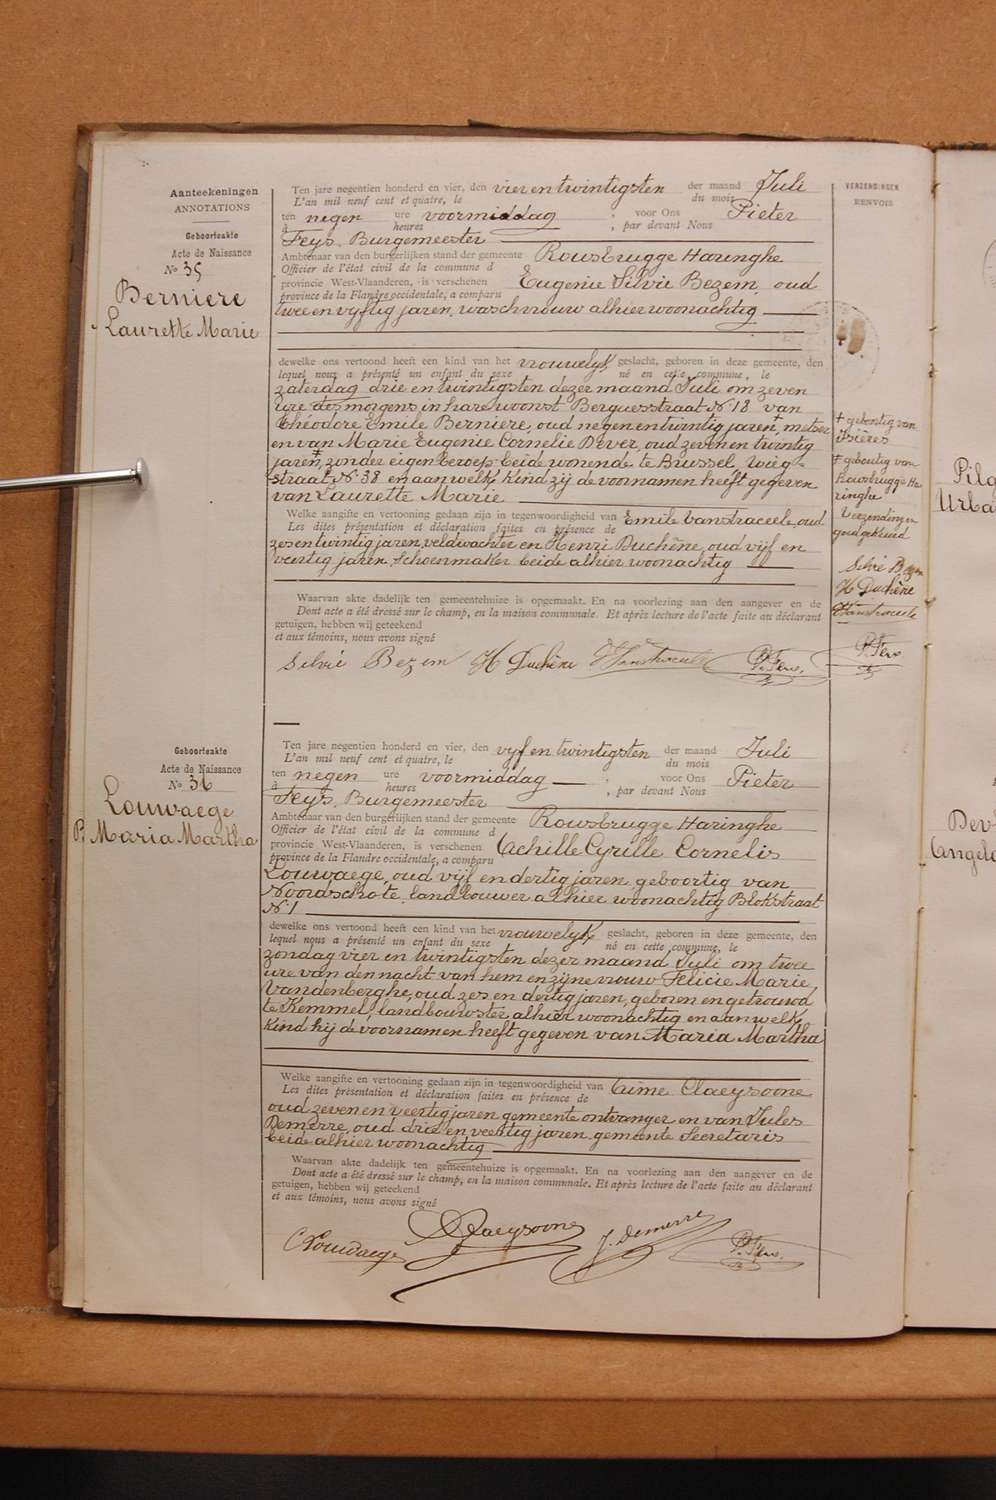 Aanteekeningen
ANNOTATIONS
Geboorteakte
Acte de Naissance
No 35
Berniere
Laurette Marie
Ten jare negentien honderd en vier, den vier en twintigsten der maand Juli
L'an mil neuf cent et quatre, le du mois
ten negen ure voormiddag ; voor Ons Pieter
à heures , par devant Nous
Feys, Burgemeester
Ambtenaar van den burgerlijken stand der gemeente Rousbrugge Haringhe
Officier de l'état civil de la commune d
provincie West-Vlaanderen, is verschenen Eugenie Silvie Bezem, oud
province de la Flandre occidentale, a comparu
twee en vyftig jaren, waschvrouw alhier woonachtig
dewelke ons vertoond heeft een kind van het vrouwelyk geslacht, geboren in deze gemeente, den
lequel nous a présenté un enfant du sexe né en cette commune, le
zaterdag drie en twintigsten dezer maand Juli om zeven
ure des morgens, in hare woonst Berguesstraat No 18 van
Théodore Emile Berniere, oud negen en twintig jaren +, metser
en van Marie Eugenie Cornelie Dever, oud zeven en twintig
jaren ‡, zonder eigen beroep beide wonende te Brussel,
straat No 38 en aan welk kind zij de voornamen heeft gegeven
van Laurette Marie
Welke aangifte en vertooning gedaan zijn in tegenwoordigheid van Emile Vanstraceele, oud
Les dites présentation et déclaration faites en présence de
zes en twintig jaren, veldwachter en Henri Duchêne, oud vijf en
veertig jaren, Schoenmaker beide alhier woonachtig
Waarvan akte dadelijk ten gemeentehuize is opgemaakt. En na voorlezing aan den aangever en de
Dont acte a été dressé sur le champ, en la maison communale. Et après lecture de l'acte faite au déclarant
getuigen, hebben wij geteekend
et aux témoins, nous avons signé
Silvie Bezem H Duchêne P. Feys
VERZENDINGEN
RENVOIS
+ geboortig van
Isières
‡ geboortig van
Rousbrugge Ha
ringhe
Verzendingen
goedgekeurd
Silvie Bezem
H Duchêne
P. Feys
Geboorteakte
Acte de Naissance
No 36
Louwaege
Maria Martha
Ten jare negentien honderd en vier, den vyf en twintigsten der maand Juli
L'an mil neuf cent et quatre, le du mois
ten negen ure voormiddag ; voor Ons Pieter
à heures , par devant Nous
Feys, Burgemeester
Ambtenaar van den burgerlijken stand der gemeente Rousbrugge Haringhe
Officier de l'état civil de la commune d
provincie West-Vlaanderen, is verschenen Achille Cyrille Cornelis
province de la Flandre occidentale, a comparu
Louwaege, oud vijf en dertig jaren, geboortig van
Noordschote, landbouwer alhier woonachtig Blokstraat
No 1
dewelke ons vertoond heeft een kind van het vrouwelyk geslacht, geboren in deze gemeente, den
lequel nous a présenté un enfant du sexe né en cette commune, le
zondag vier en twintigsten dezer maand Juli om twee
ure van den nacht van hem en zijne vrouw Felicie Marie
Vandenberghe, oud zes en dertig jaren, geboren en getrouwd
te Kemmel, landbouwster, alhier woonachtig en aan welk
kind hij de voornamen heeft gegeven van Maria Martha
Welke aangifte en vertooning gedaan zijn in tegenwoordigheid van Aimé Claeysoone
Les dites présentation et déclaration faites en présence de
oud zeven en veertig jaren gemeente ontvanger en van Jules
Demerre, oud drie en veertig jaren, gemeente Secretaris
beide alhier woonachtig
Waarvan akte dadelijk ten gemeentehuize is opgemaakt. En na voorlezing aan den aangever en de
Dont acte a été dressé sur le champ, en la maison communale. Et après lecture de l'acte faite au déclarant
getuigen, hebben wij geteekend
et aux témoins, nous avons signé
C Louwaege Claeysoone J. Demerre P. Feys